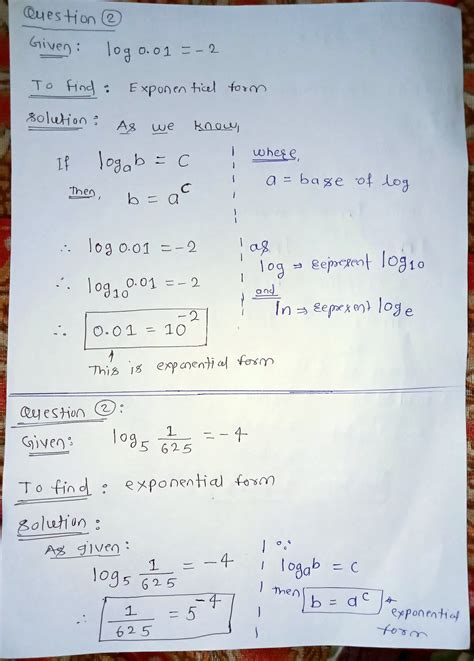 Question ②
Given: log 0.01 = -2
To find: Exponential form
Solution: As we know,
If log_a b = c
Then, b = a^c
where,
a = base of log
∴ log 0.01 = -2
∴ log_10 0.01 = -2
∴ 0.01 = 10^-2
↑
This is exponential form
as
log ⇒ represent log_10
and
ln ⇒ represent log_e
Question ②:
Given: log_5 1/625 = -4
To find: exponential form
Solution:
As given:
log_5 1/625 = -4
∴ 1/625 = 5^-4
∵
log_a b = c
then b = a^c
exponential
form